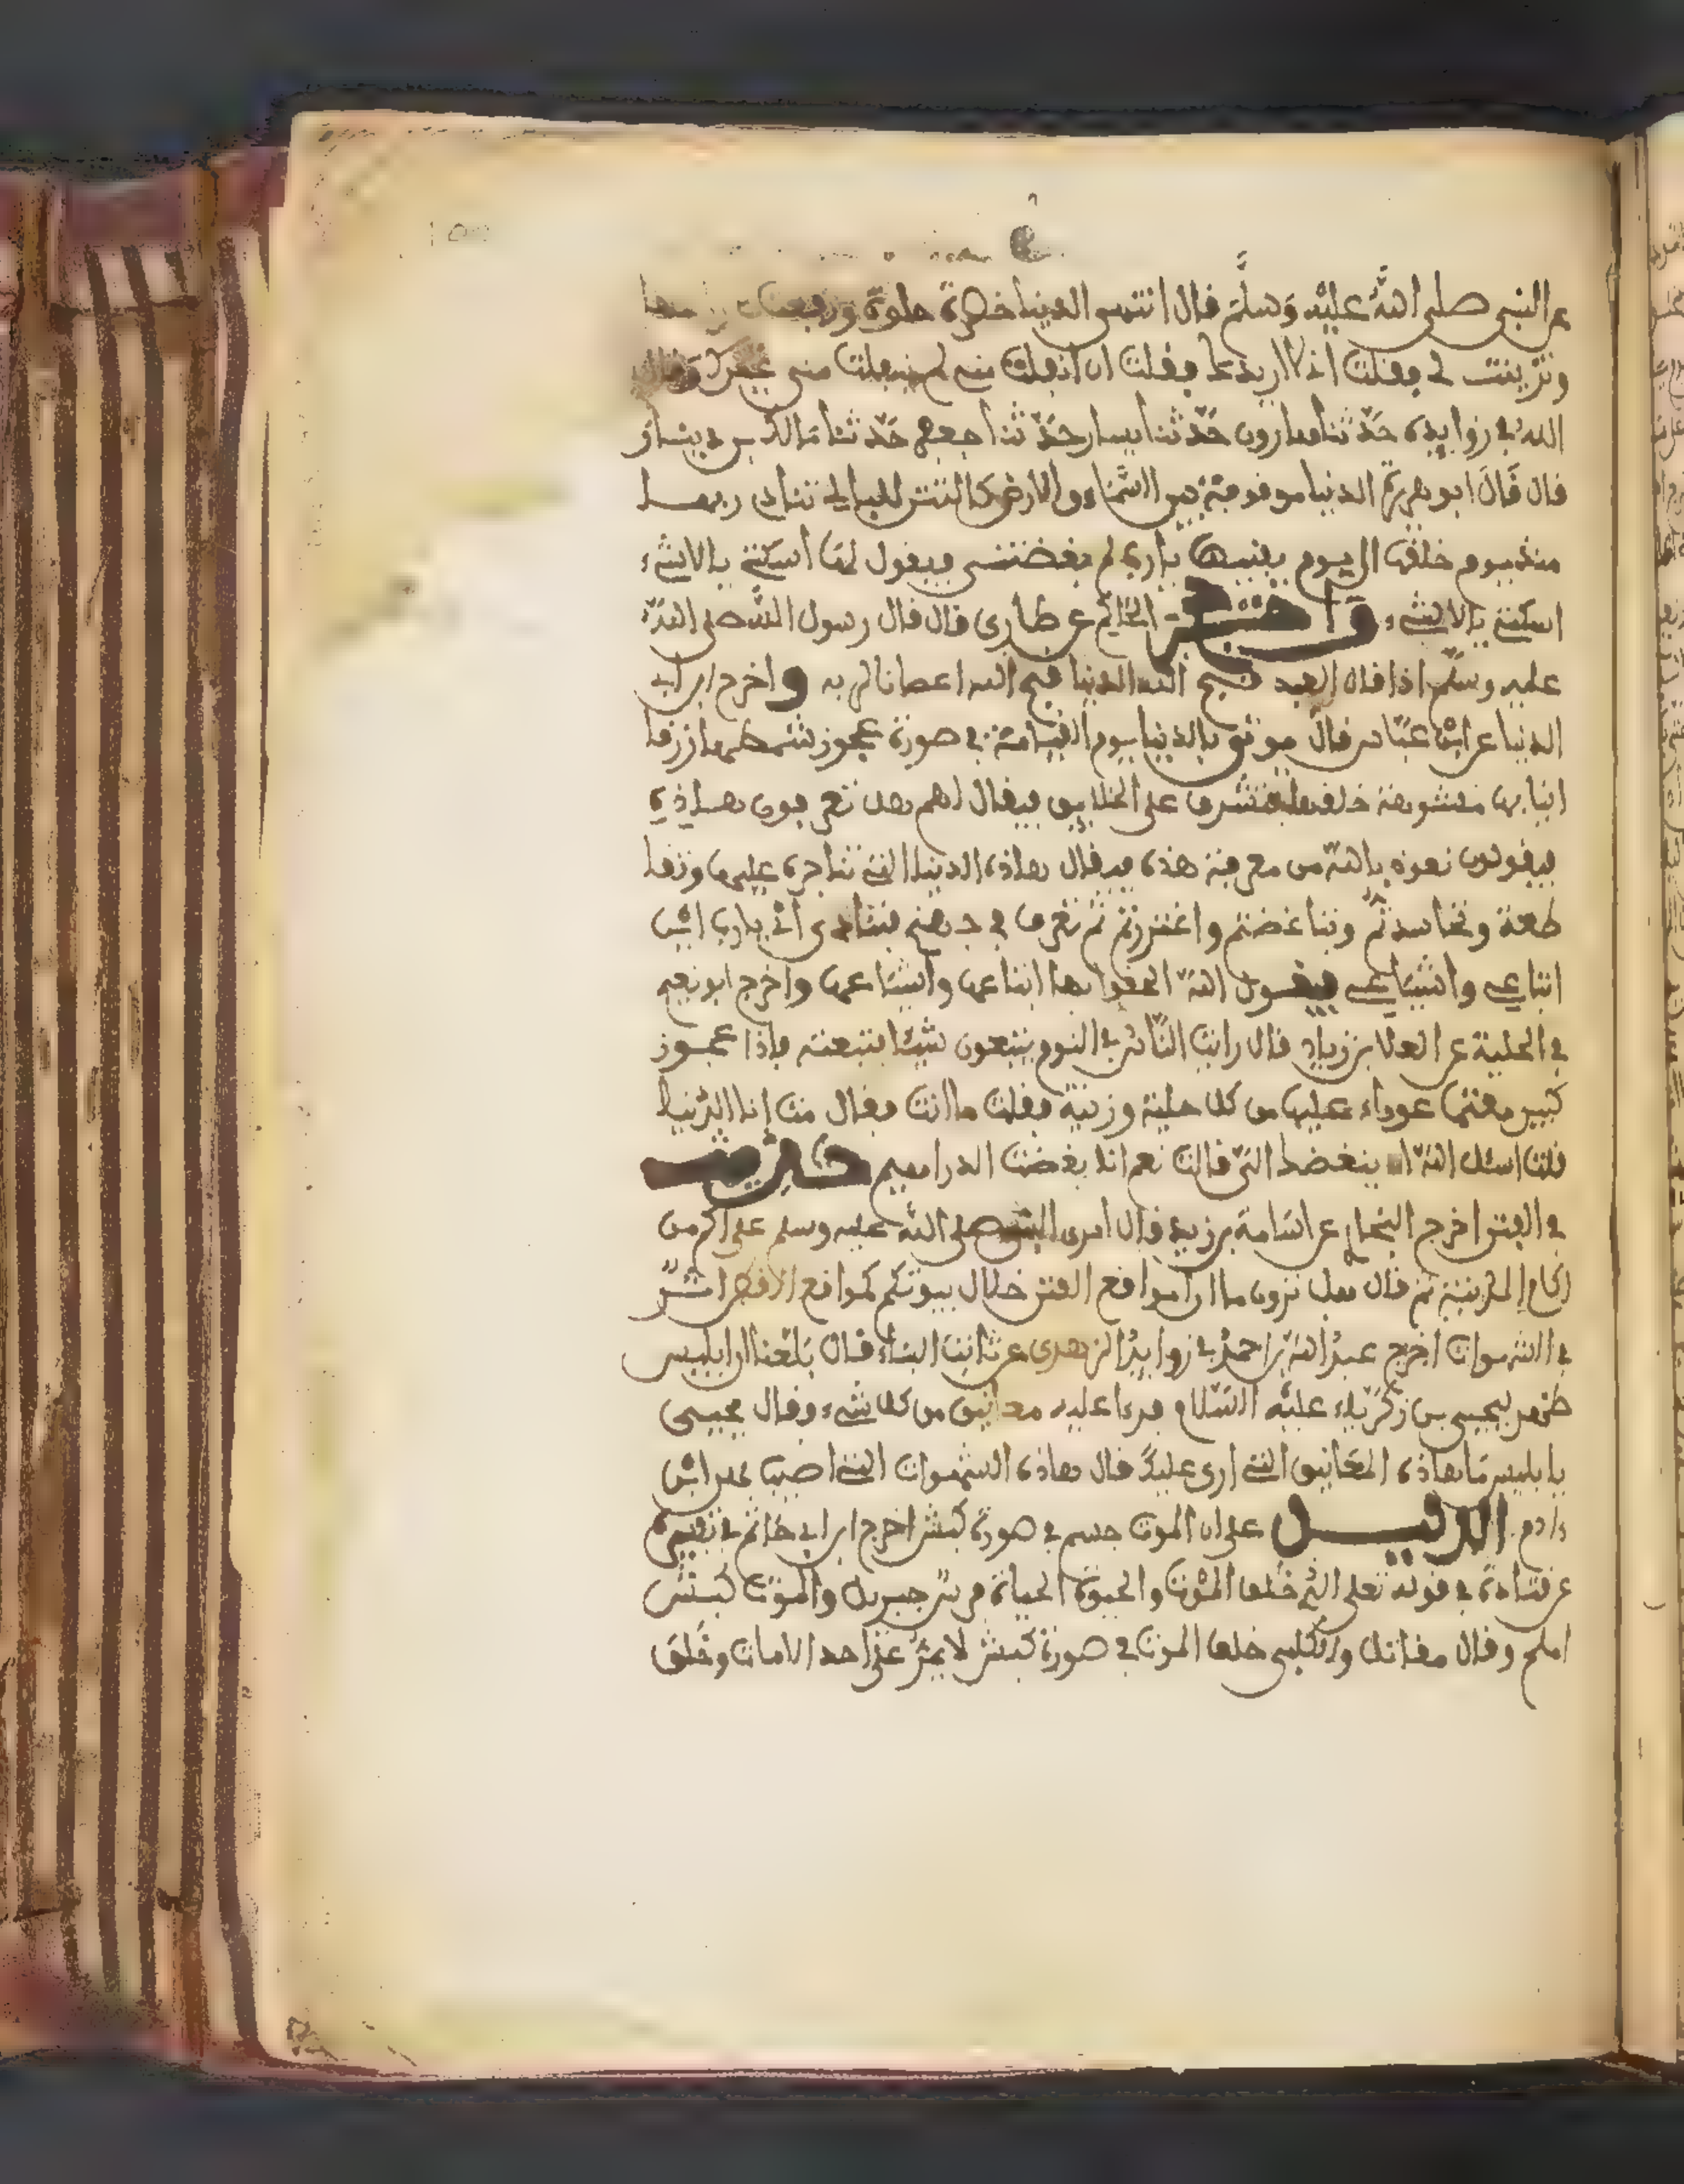 عن النبي صلى الله عليه وسلم قال اتتني الدينا خضرة حلوة ورفعت
وتزينت لي فقلت اني لا اريدها فقلت ان انفلت مني لم ينفلت مني غيرك وقال
الله في زوايده حدثنا هارون حدثنا يسار حدثنا جعفر حدثنا مالك بن دينار
قال قال ابو هريرة الدنيا موقوفة بين السماء والارض كالشن البالي تنادي ربها
منذ يوم خلقها الى يوم يفنيها يا رب لم تبغضني فيقول لها اسكتي يا لا شيء
اسكتي يا لا شيء واخرج الحاكم عن طارق قال قال رسول الله صلى الله
عليه وسلم اذا قال العبد قبح الله الدنيا قبح الله اعصانا لربه واخرج ابن ابي
الدنيا عن ابن عباس قال يوتى بالدنيا يوم القيامة في صورة عجوز شمطها ازرقا
انيابها مشوهة خلقها فتشرف على الخلايق فيقال لهم هل تعرفون هاذه
فيقولون نعوذ بالله من معرفة هذه فيقال هاذه الدنيا التي تناجرة عليها وتقا
طعة وتحاسدتم وتباغضتم واغتررتم ثم تقذف في جهنم فتنادي اي يا رب اين
اتباعي واشياعي فيقول الله الحقوا بها اتباعها واشياعها واخرج ابو نعيم
في الحلية عن العلا بن زياد قال رايت الناس في النوم يتبعون شيئا فتبعته فاذا عجوز
كبير هتما عوراء عليها من كل حلية وزينة فقلت ما انت فقال مت انا الدنيا
قلت اسئل الله ان يبغضك الي قالت نعم اذا بغضت الدراهيم حديث
في الفتن اخرج البخاري عن اسامة بن زيد قال اشرف النبي صلى الله عليه وسلم على اكم من
اكام المدينة ثم قال هل ترون ما ارا مواقع الفتن خلال بيوتكم كمواقع الاقطر اثر
في الشهوات اخرج عبد الله بن احمد في زوايد الزهدي عن ثابت البناء قال بلغنا ان ابليس
ظهر ليحيى بن زكرياء عليه السلام فرءا عليه معاليق من كل شيء وقال يحيى
يا بليس ما هاذه المعاليق التي ارى عليك قال هاذه الشهوات التي اصيب بهن ابن
ءادم الدليل على ان الموت جسم في صورة كبش اخرج ابن ابي حاتم في تفسيره
عن قتادة في قوله تعلى الذي خلق الموت والحيوة الحياة فرس جبريل والموت كبش
املح وقال مقاتل والكلبي خلق الموت في صورة كبش لا يمر على احد الا مات وخلق